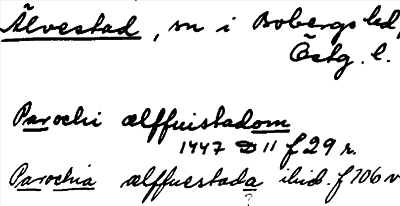 Älvestad, sn i Bobergs hd,
Östg. l.
Parochi ælffuistadom
1447 D 11 f 29 r.
Parochia ælffuestada ibid. f 106 v
?